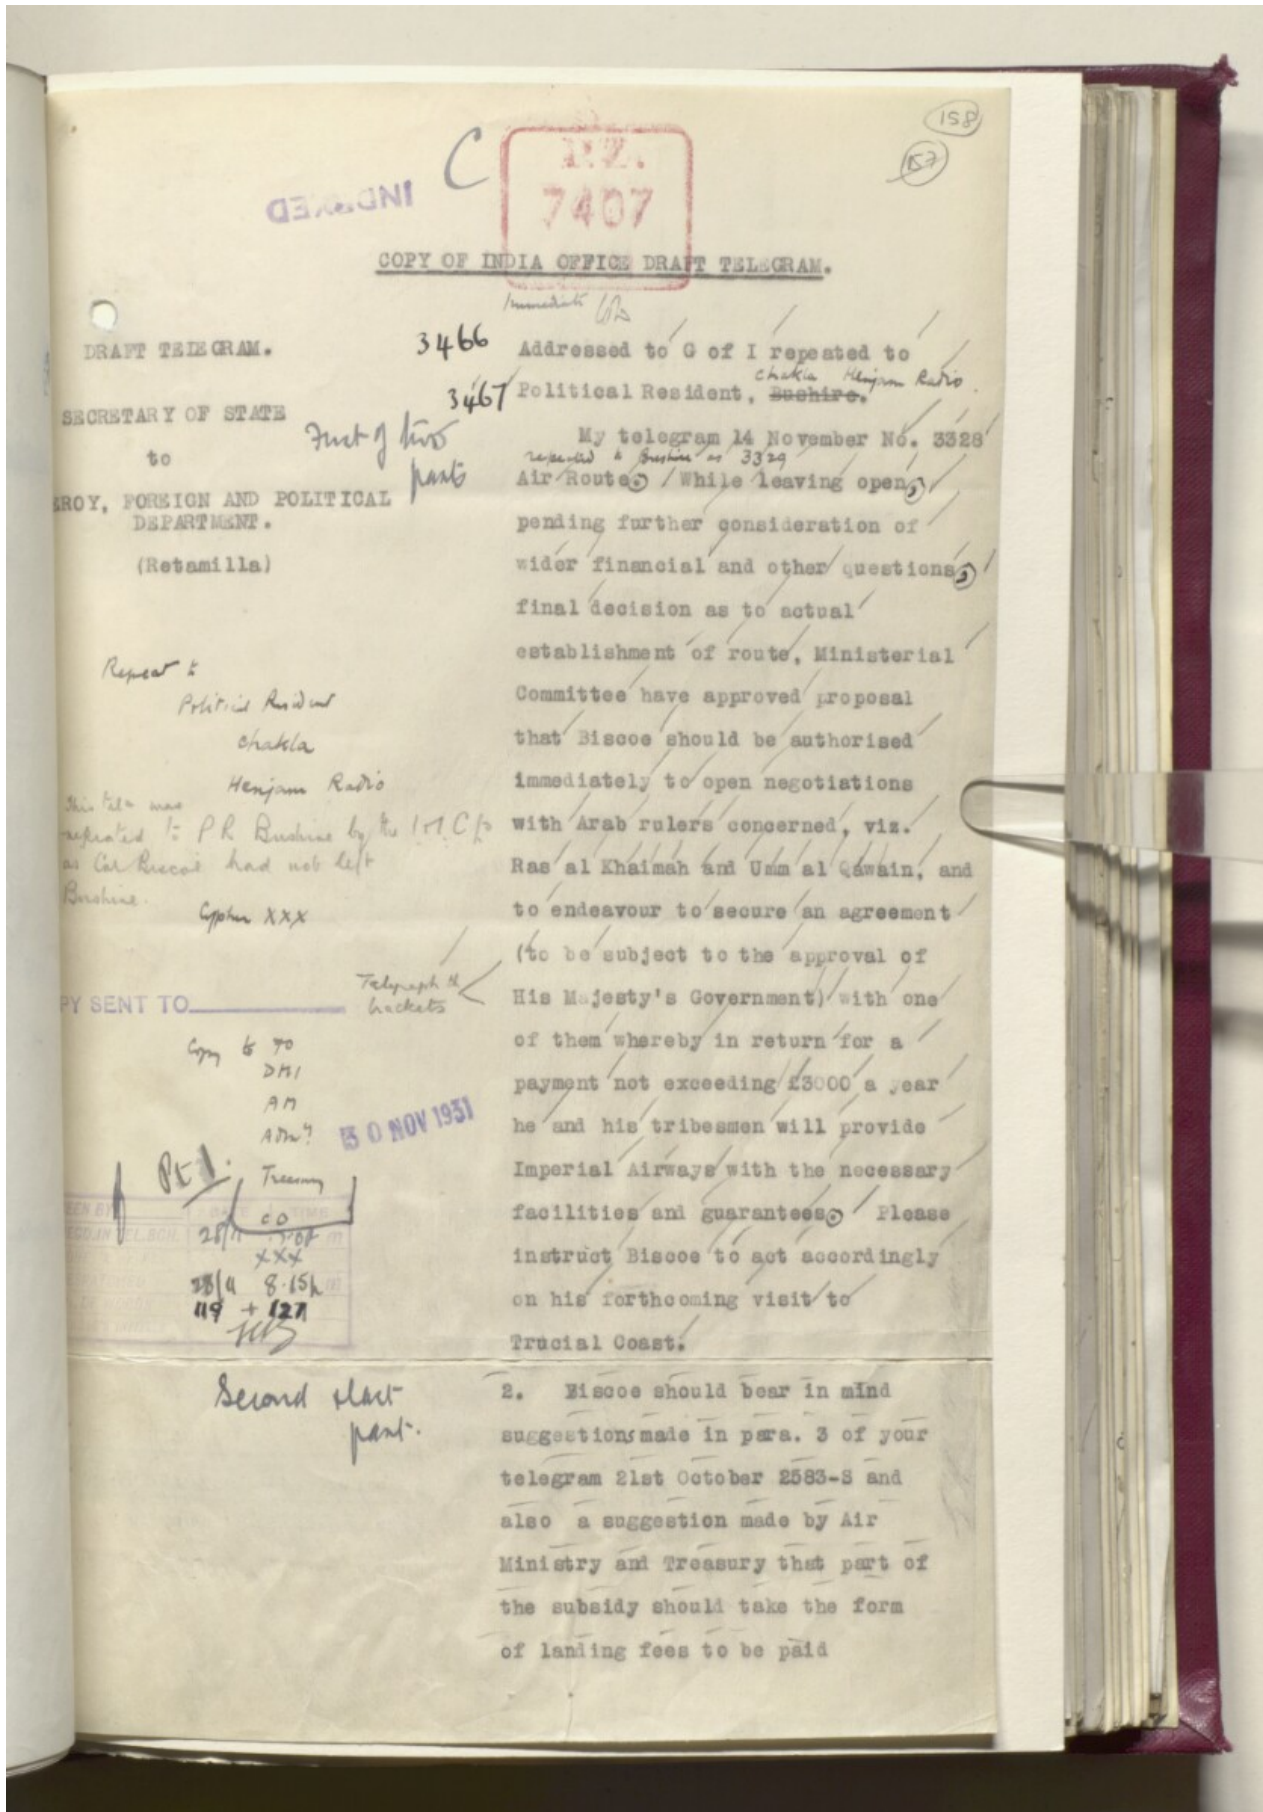 158
157
C
INDEXED
P.Z.
7407
COPY OF INDIA OFFICE DRAFT TELEGRAM.
Immediate
DRAFT TELEGRAM.
SECRETARY OF STATE
to
EROY, FOREIGN AND POLITICAL
DEPARTMENT.
(Retamilla)
3466
3467
First of two
parts
Repeat to
Political Resident
Chakla
Henjam Radio
This tel. was
repeated to P R Bushire by the
as Col Biscoe had not left
Bushire.
Cypher XXX
PY SENT TO
Telegraph
brackets
Copy to
DMI
AM
Admy
Treasury
CO
30 NOV 1931
Pt 1.
EEN BY
DATE TIME
XXX
28/11 8.15
119 + 127
Second & last
part.
Addressed to G of I repeated to
Chakla Henjam Radio.
Political Resident, Bushire.
My telegram 14 November No. 3328
repeated to Bushire as 3329
Air Route. While leaving open,
pending further consideration of
wider financial and other questions,
final decision as to actual
establishment of route, Ministerial
Committee have approved proposal
that Biscoe should be authorised
immediately to open negotiations
with Arab rulers concerned, viz.
Ras al Khaimah and Umm al Qawain, and
to endeavour to secure an agreement
(to be subject to the approval of
His Majesty's Government) with one
of them whereby in return for a
payment not exceeding £3000 a year
he and his tribesmen will provide
Imperial Airways with the necessary
facilities and guarantees. Please
instruct Biscoe to act accordingly
on his forthcoming visit to
Trucial Coast.
2. Biscoe should bear in mind
suggestions made in para. 3 of your
telegram 21st October 2583-S and
also a suggestion made by Air
Ministry and Treasury that part of
the subsidy should take the form
of landing fees to be paid